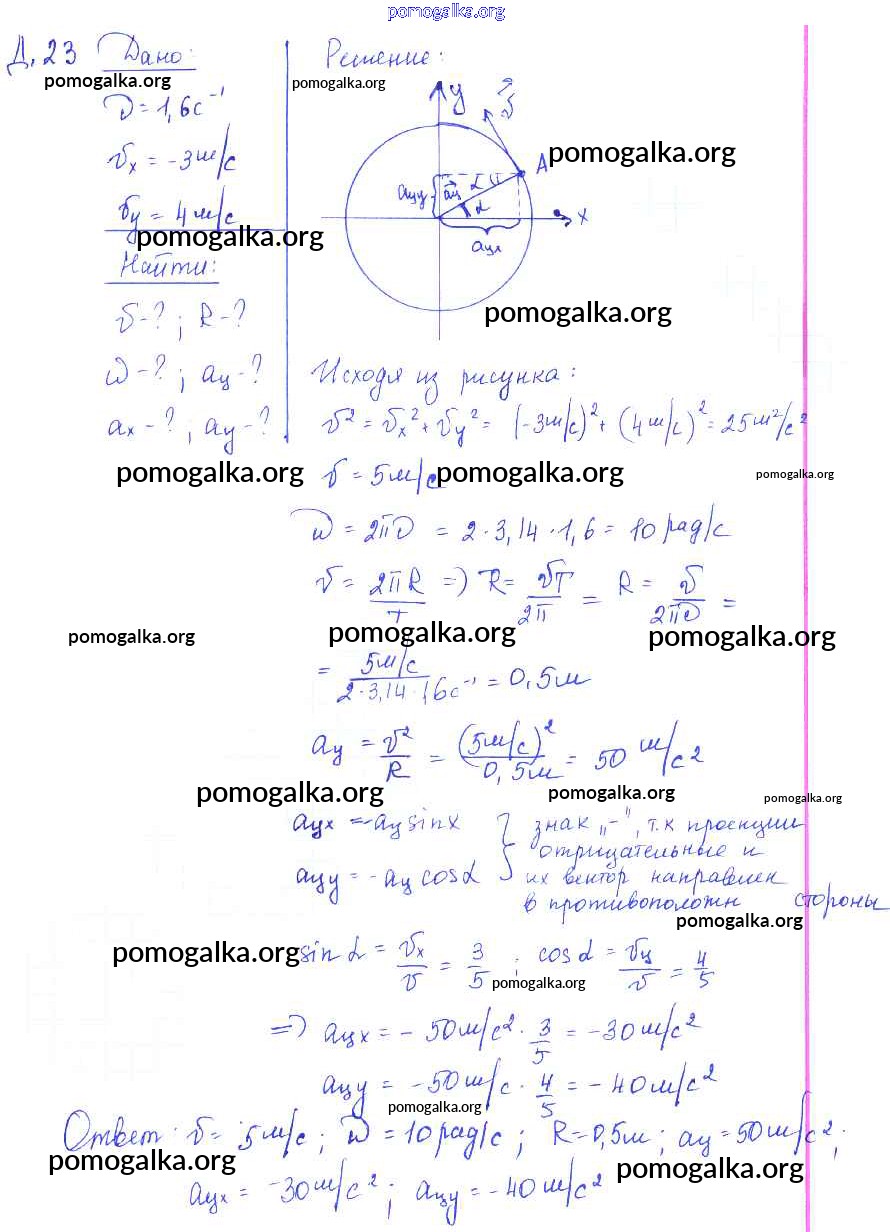 pomogalka.org
Д.23 Дано: Решение:
pomogalka.org pomogalka.org
ν = 1,6 с⁻¹
y v⃗
A pomogalka.org
vₓ = -3 м/с
aцy a⃗ц α
α
vy = 4 м/с
x
pomogalka.org
aцx
Найти:
pomogalka.org
v - ? ; R - ?
ω - ? ; aц - ? Исходя из рисунка:
ax - ? ; ay - ? v² = vx² + vy² = (-3м/с)² + (4м/с)² = 25м²/с²
pomogalka.org v = 5м/с pomogalka.org pomogalka.org
ω = 2πν = 2·3,14·1,6 = 10 рад/с
v = 2πR/T => R = vT/2π = R = v/2πν =
pomogalka.org pomogalka.org pomogalka.org
= 5м/с / 2·3,14·1,6с⁻¹ = 0,5м
aц = v²/R = (5м/с)²/0,5м = 50 м/с²
pomogalka.org pomogalka.org pomogalka.org
aцx = -aц sinα } знак „-", т.к проекции
отрицательные и
aцy = -aц cosα их вектор направлен
в противоположн стороны
pomogalka.org
pomogalka.org sin α = vx/v = 3/5 ; cos α = vy/v = 4/5
pomogalka.org
=> aцx = - 50м/с² · 3/5 = -30м/с²
aцy = -50м/с · 4/5 = - 40м/с²
pomogalka.org
Ответ: v = 5м/с ; ω = 10рад/с ; R = 0,5м ; aц = 50м/с² ;
pomogalka.org pomogalka.org
aцx = -30м/с² ; aцy = -40м/с²